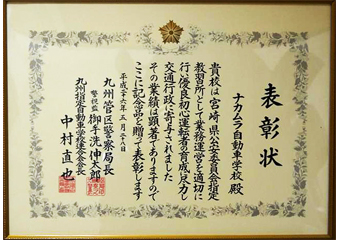 表彰状
ナカムラ自動車学校 殿
貴校は宮崎県公安委員会指定
教習所として業務運営を適切に
行い優良初心運転者の育成に尽力し
交通行政に寄与されました
その業績は顕著でありますので
ここに記念品を贈って表彰します
平成二十六年五月二十八日
九州管区警察局長
警視監 御手洗伸太郎
九州指定自動車学校連合会会長
中村直也